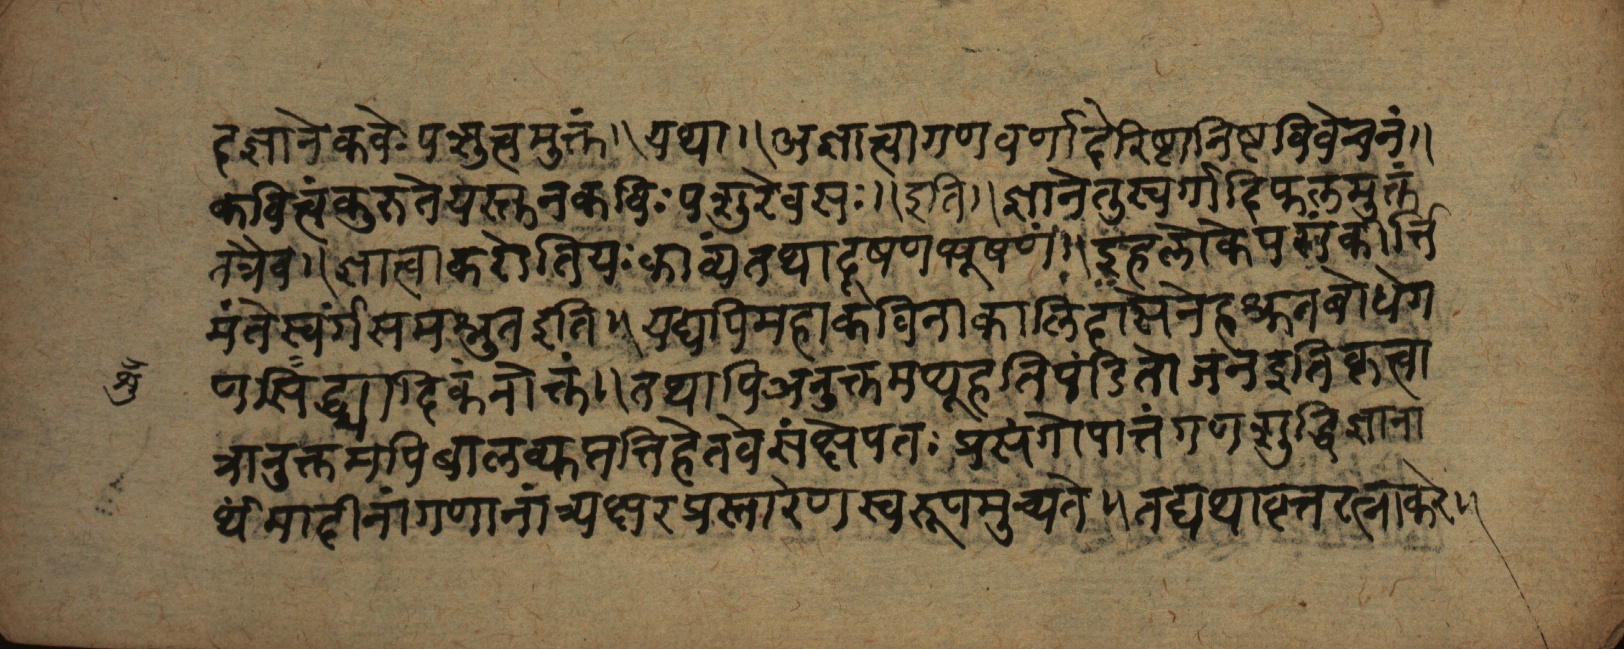 दज्ञाने कवेः पशुत्वमुक्तं॥ यथा॥ अज्ञात्वागणवर्णादेरिष्टानिष्टविवेचनं॥
कवित्वं कुरुते यस्तु न कविः पशुरेव सः॥ इति॥ ज्ञाने तु स्वर्गादिफलमुक्तं
तत्रैव॥ ज्ञात्वा करोति यः काव्यं तथा दूषणभूषणं॥ इहलोके यशः कीर्त्ति
मंते स्वर्गं समश्नुत इति॥ यद्यपि महाकविना कालिदासेनेह श्रुतबोधे ग
णसिद्ध्यादिकं नोक्तं॥ तथापि अनुक्तमप्यूहति पंडितो जन इति कृत्वा
त्रानुक्तमपि बालव्युत्पत्तिहेतवे संक्षेपतः प्रसंगोपात्तं गणशुद्धिज्ञाना
र्थं मादीनां गणानां त्र्यक्षरप्रस्तारेण स्वरूपमुच्यते॥ तद्यथा वृत्तरत्नाकरे॥
श्रु